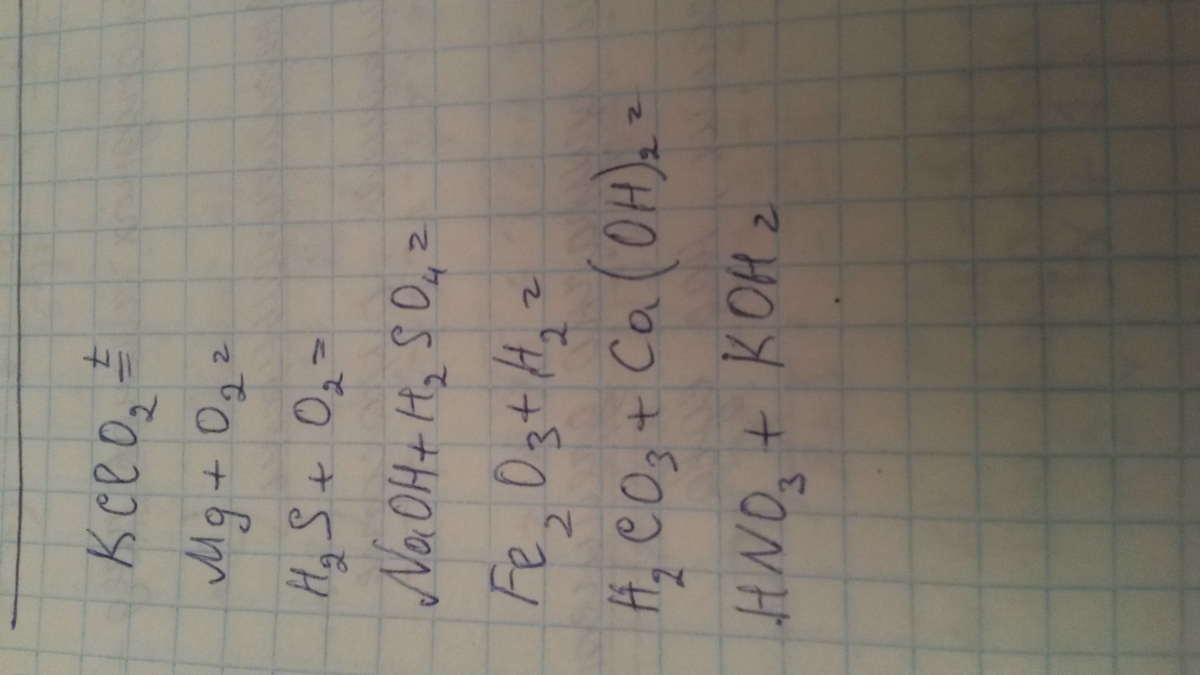 KClO₂ =t
Mg + O₂ =
H₂S + O₂ =
NaOH + H₂SO₄ =
Fe₂O₃ + H₂ =
H₂CO₃ + Ca(OH)₂ =
HNO₃ + KOH =